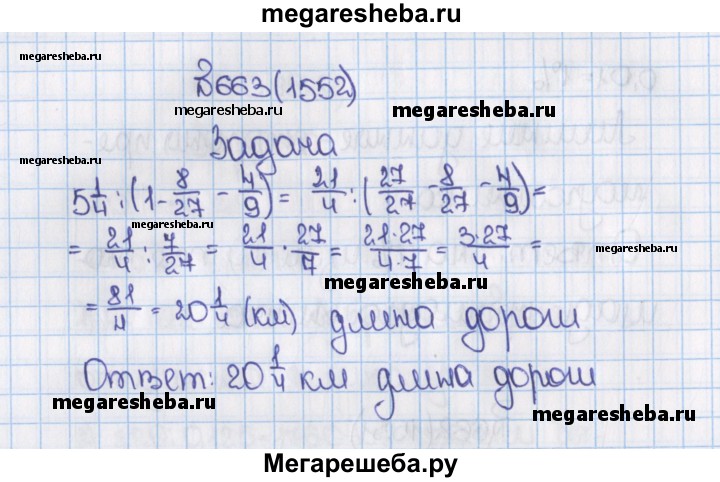 megaresheba.ru
megaresheba.ru megaresheba.ru
№663(1552)
megaresheba.ru megaresheba.ru
Задача
megaresheba.ru megaresheba.ru
5 1/4 : (1 - 8/27 - 4/9) = 21/4 : (27/27 - 8/27 - 4/9) =
megaresheba.ru
= 21/4 : 7/27 = 21/4 · 27/7 = 21·27/4·7 = 3·27/4 =
megaresheba.ru
megaresheba.ru megaresheba.ru
= 81/4 = 20 1/4 (км) длина дороги
Ответ: 20 1/4 км длина дороги
megaresheba.ru megaresheba.ru
Мегарешеба.ру